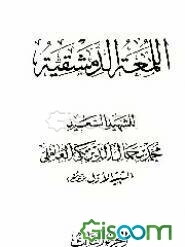 اللمعة الدمشقية
للشهيد السعيد
محمد بن جمال الدين مكي العاملي
(الشهيد الأول)
gisoom
.com